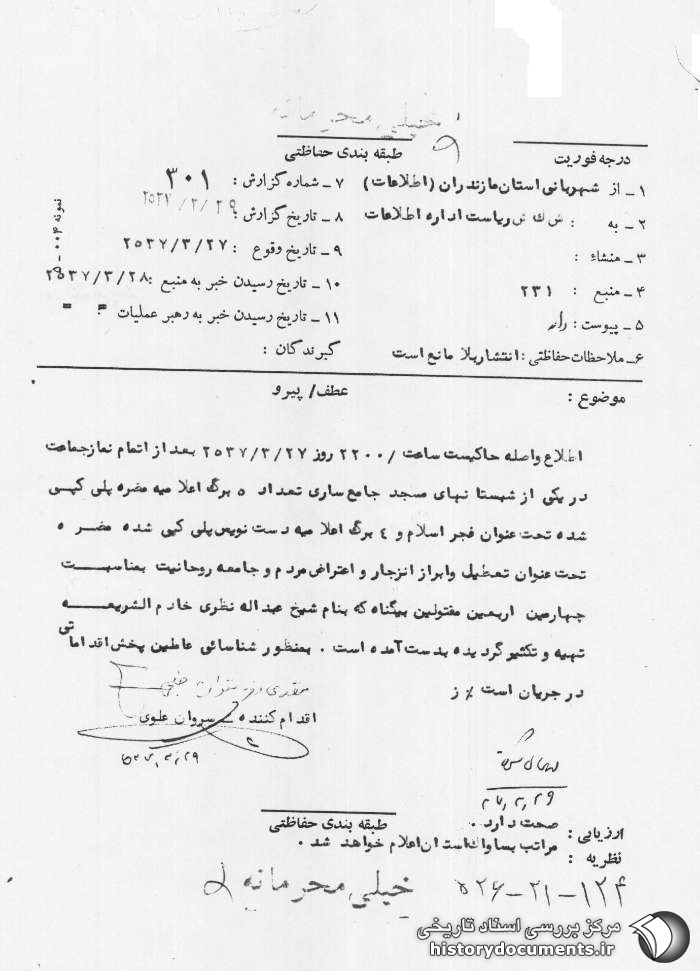 خیلی محرمانه
درجه فوریت
طبقه بندی حفاظتی
۱ـ از شهربانی استان مازندران (اطلاعات)
۷ـ شماره گزارش : ۳۰۱
۲ـ به : ش ك ش ریاست اداره اطلاعات
۸ـ تاریخ گزارش : ۲۵۳۷/۳/۲۹
۳ـ منشاء :
۹ـ تاریخ وقوع : ۲۵۳۷/۳/۲۷
۴ـ منبع : ۲۳۱
۱۰ـ تاریخ رسیدن خبر به منبع : ۲۵۳۷/۳/۲۸
۵ـ پیوست : دارد
۱۱ـ تاریخ رسیدن خبر به رهبر عملیات : = =
۶ـ ملاحظات حفاظتی : انتشار بلا مانع است
گیرندگان :
نمونه ۰۰۴ـ
موضوع :
عطف/ پیرو
اطلاع واصله حاکیست ساعت /۲۲۰۰ روز ۲۵۳۷/۳/۲۷ بعد از اتمام نماز جماعت
در یکی از شبستا نهای مسجد جامع ساری تعداد ۵ برگ اعلا میه مضره پلی کپی
شده تحت عنوان فجر اسلام و ٤ برگ اعلا میه دست نویس پلی کپی شده مضره
تحت عنوان تعطیل وابراز انزجار و اعتراض مردم و جامعه روحانیت بمناسبت
چهارمین اربعین مقتولین بیگناه که بنام شیخ عبداله نظری خادم الشریعه
تهیه و تکثیر گردیده بدست آمده است . بمنظور شناسائی عاملین پخش اقداماتی
در جریان است ٪ ز
اقدام کننده ـ سروان علوی
۲۵۳۷/۳/۲۹
۳۷/۳/۲۹
طبقه بندی حفاظتی
ارزیابی : صحت دارد .
نظریه : مراتب بساواك استان اعلام خواهد شد .
خیلی محرمانه
۵۲۶-۲۱-۱۲۴
مرکز بررسی اسناد تاریخی
historydocuments.ir